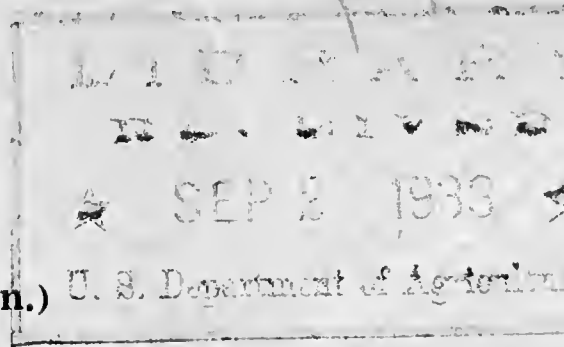 LIBRARY
RECEIVED
★ SEP 8 1933 ★
n.) U. S. Department of Agriculture